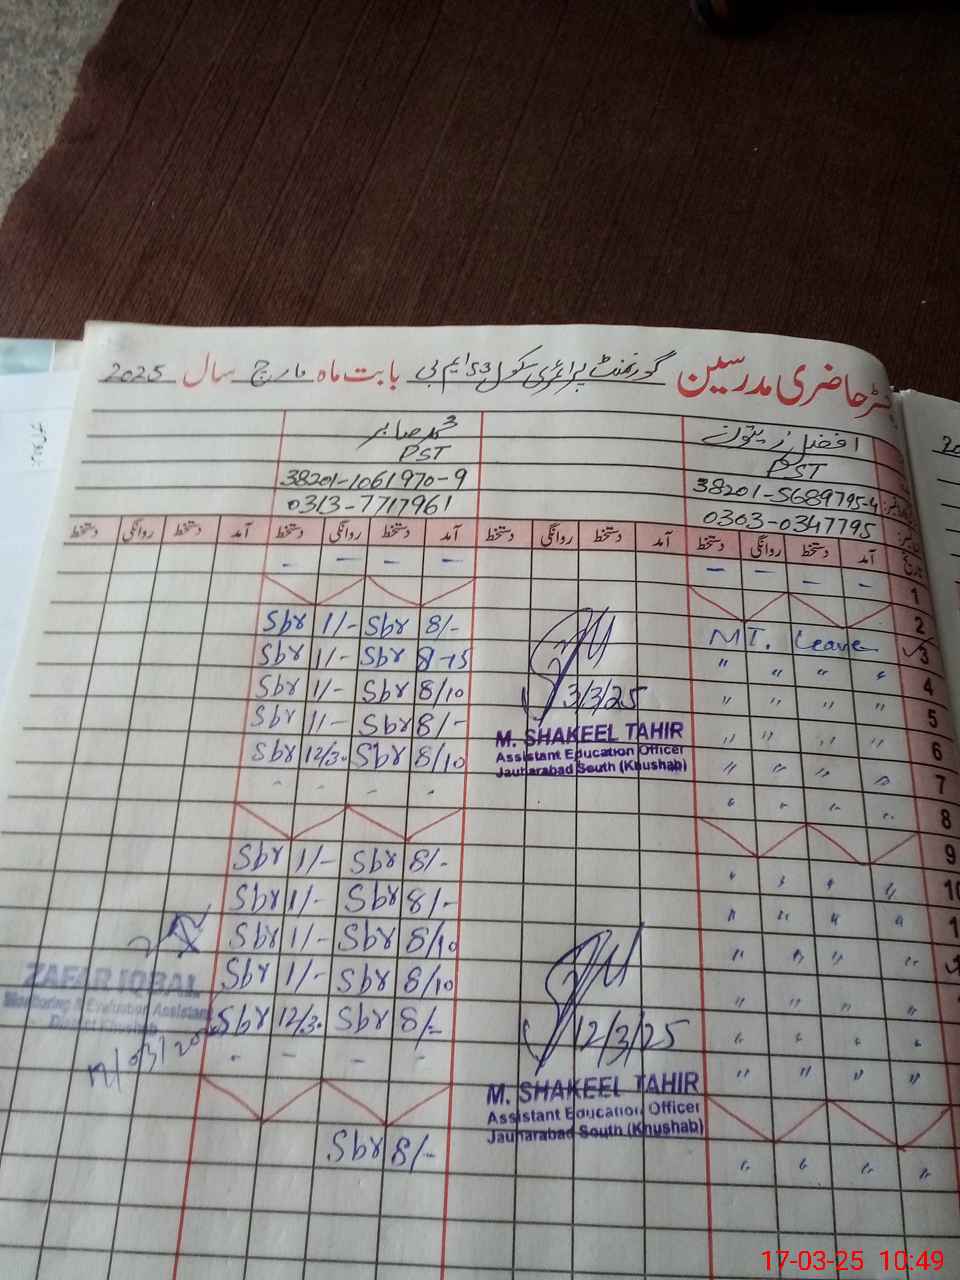 رجسٹر حاضری مدرسین گورنمنٹ پرائمری سکول 53 ایم بی بابت ماہ مارچ سال 2025
افضل زیتون
PST
38201-5689795-4
0303-0347795
محمد صابر
PST
38201-1061970-9
0313-7717961
تاریخ آمد دستخط روانگی دستخط آمد دستخط روانگی دستخط آمد دستخط روانگی دستخط آمد دستخط روانگی دستخط
1
2
3 MT. Leave 8/- Sbr 1/- Sbr
4 " " " " 8-15 Sbr 1/- Sbr
5 " " " " 8/10 Sbr 1/- Sbr
6 " " " " 8/- Sbr 1/- Sbr
7 " " " " 8/10 Sbr 12/30 Sbr
8 " " " "
9
10 " " " " 8/- Sbr 1/- Sbr
" " " " 8/- Sbr 1/- Sbr
" " " " 8/10 Sbr 1/- Sbr
" " " " 8/10 Sbr 1/- Sbr
" " " " 8/- Sbr 12/30 Sbr
" " " "
" " " " 8/- Sbr
3/3/25
M. SHAKEEL TAHIR
Assistant Education Officer
Jauharabad South (Khushab)
12/3/25
M. SHAKEEL TAHIR
Assistant Education Officer
Jauharabad South (Khushab)
ZAFAR IQBAL
Monitoring & Evaluation Assistant
District Khushab
17-03-25 10:49